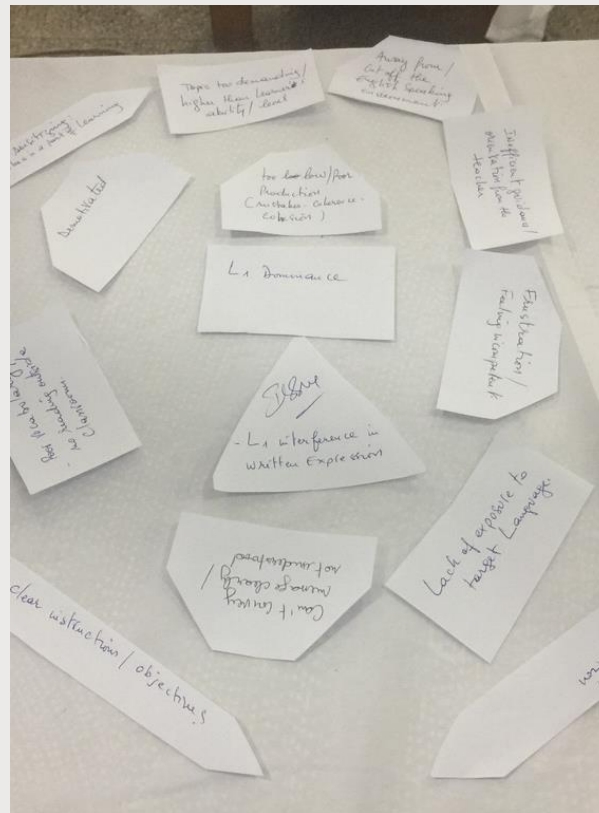 Topic too demanding/
higher than learners'
ability/level
Away from/
Cut off the
English speaking
environment
of learning
Insufficient guidance/
motivation from the
teacher
Demotivated
too low/Poor
Production
(mistakes. coherence.
cohesion)
L1 Dominance
Frustration/
Feeling incompetent
- Poor vocabulary
no reading outside
Classroom.
Issue
- L1 interference in
written Expression
Lack of exposure to
target Language.
Can't convey
message clearly/
not understood
clear instructions / objectives